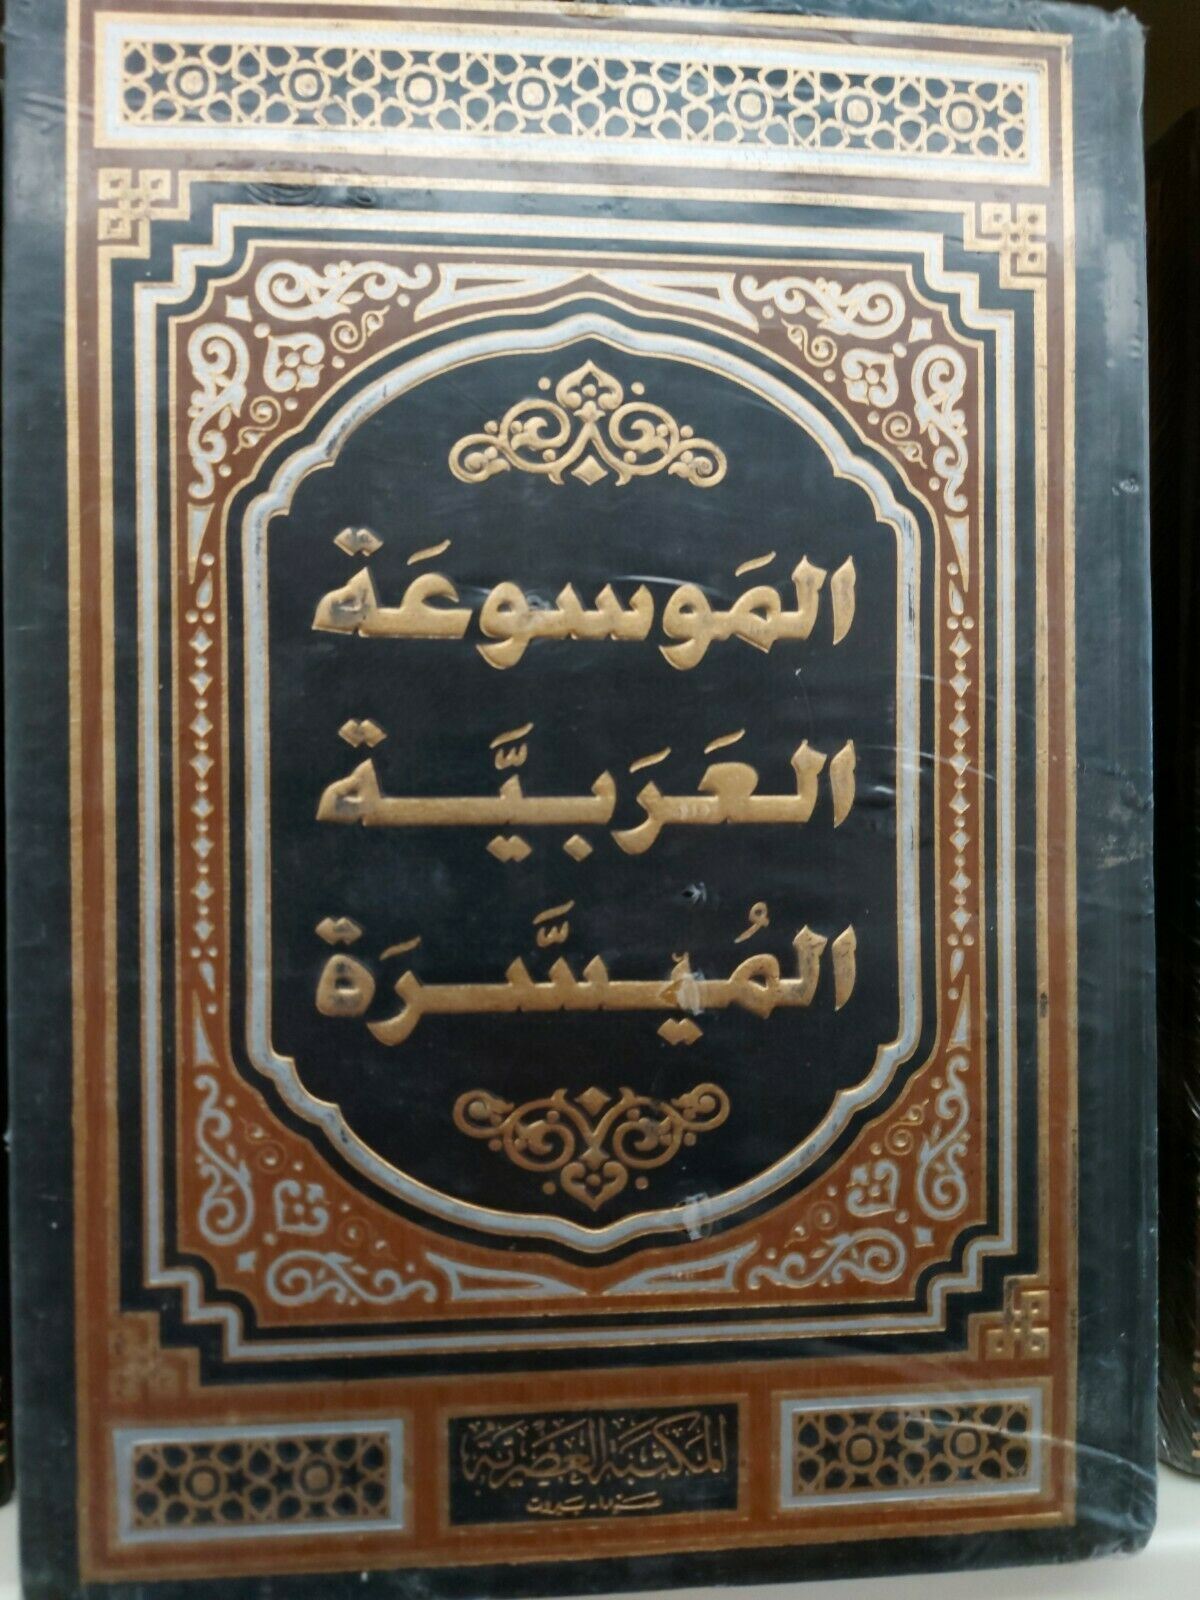 المَوسوعَة
العَرَبيَّة
المُيسَّرَة
المكتبة العصرية
صيدا - بيروت